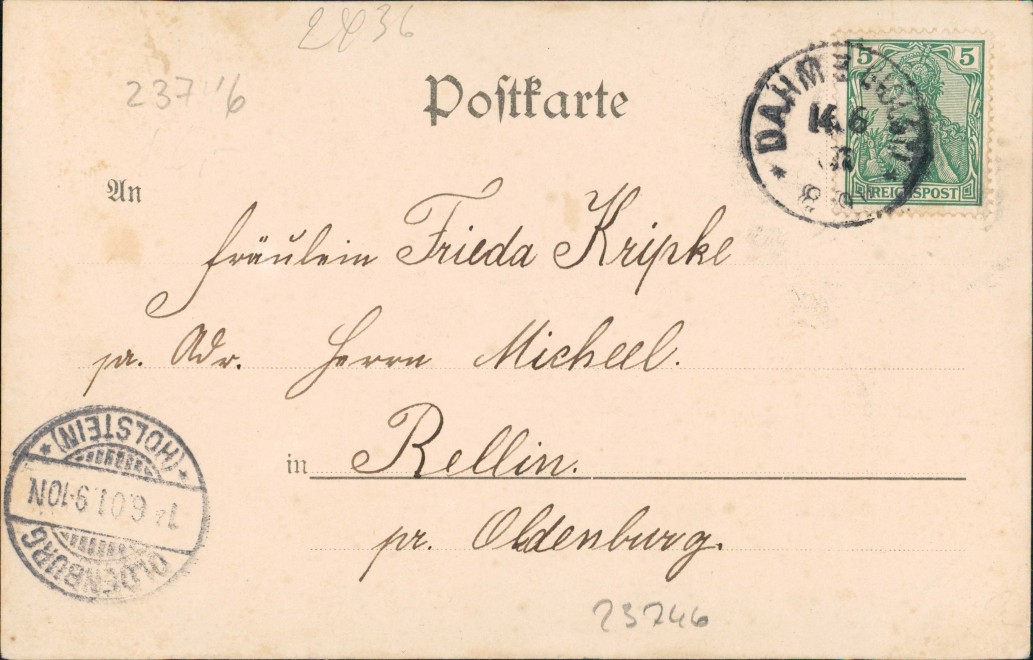 2436
23716
Postkarte
5 5
REICHSPOST
* DAHME (HOLST.) *
14.6
01
8-9
An
Fräulein Frieda Kripke
pa. Adr. Herrn Micheel.
in Rellin.
pr. Oldenburg.
OLDENBURG
14.6.01.9-10N
*(HOLSTEIN)*
23746